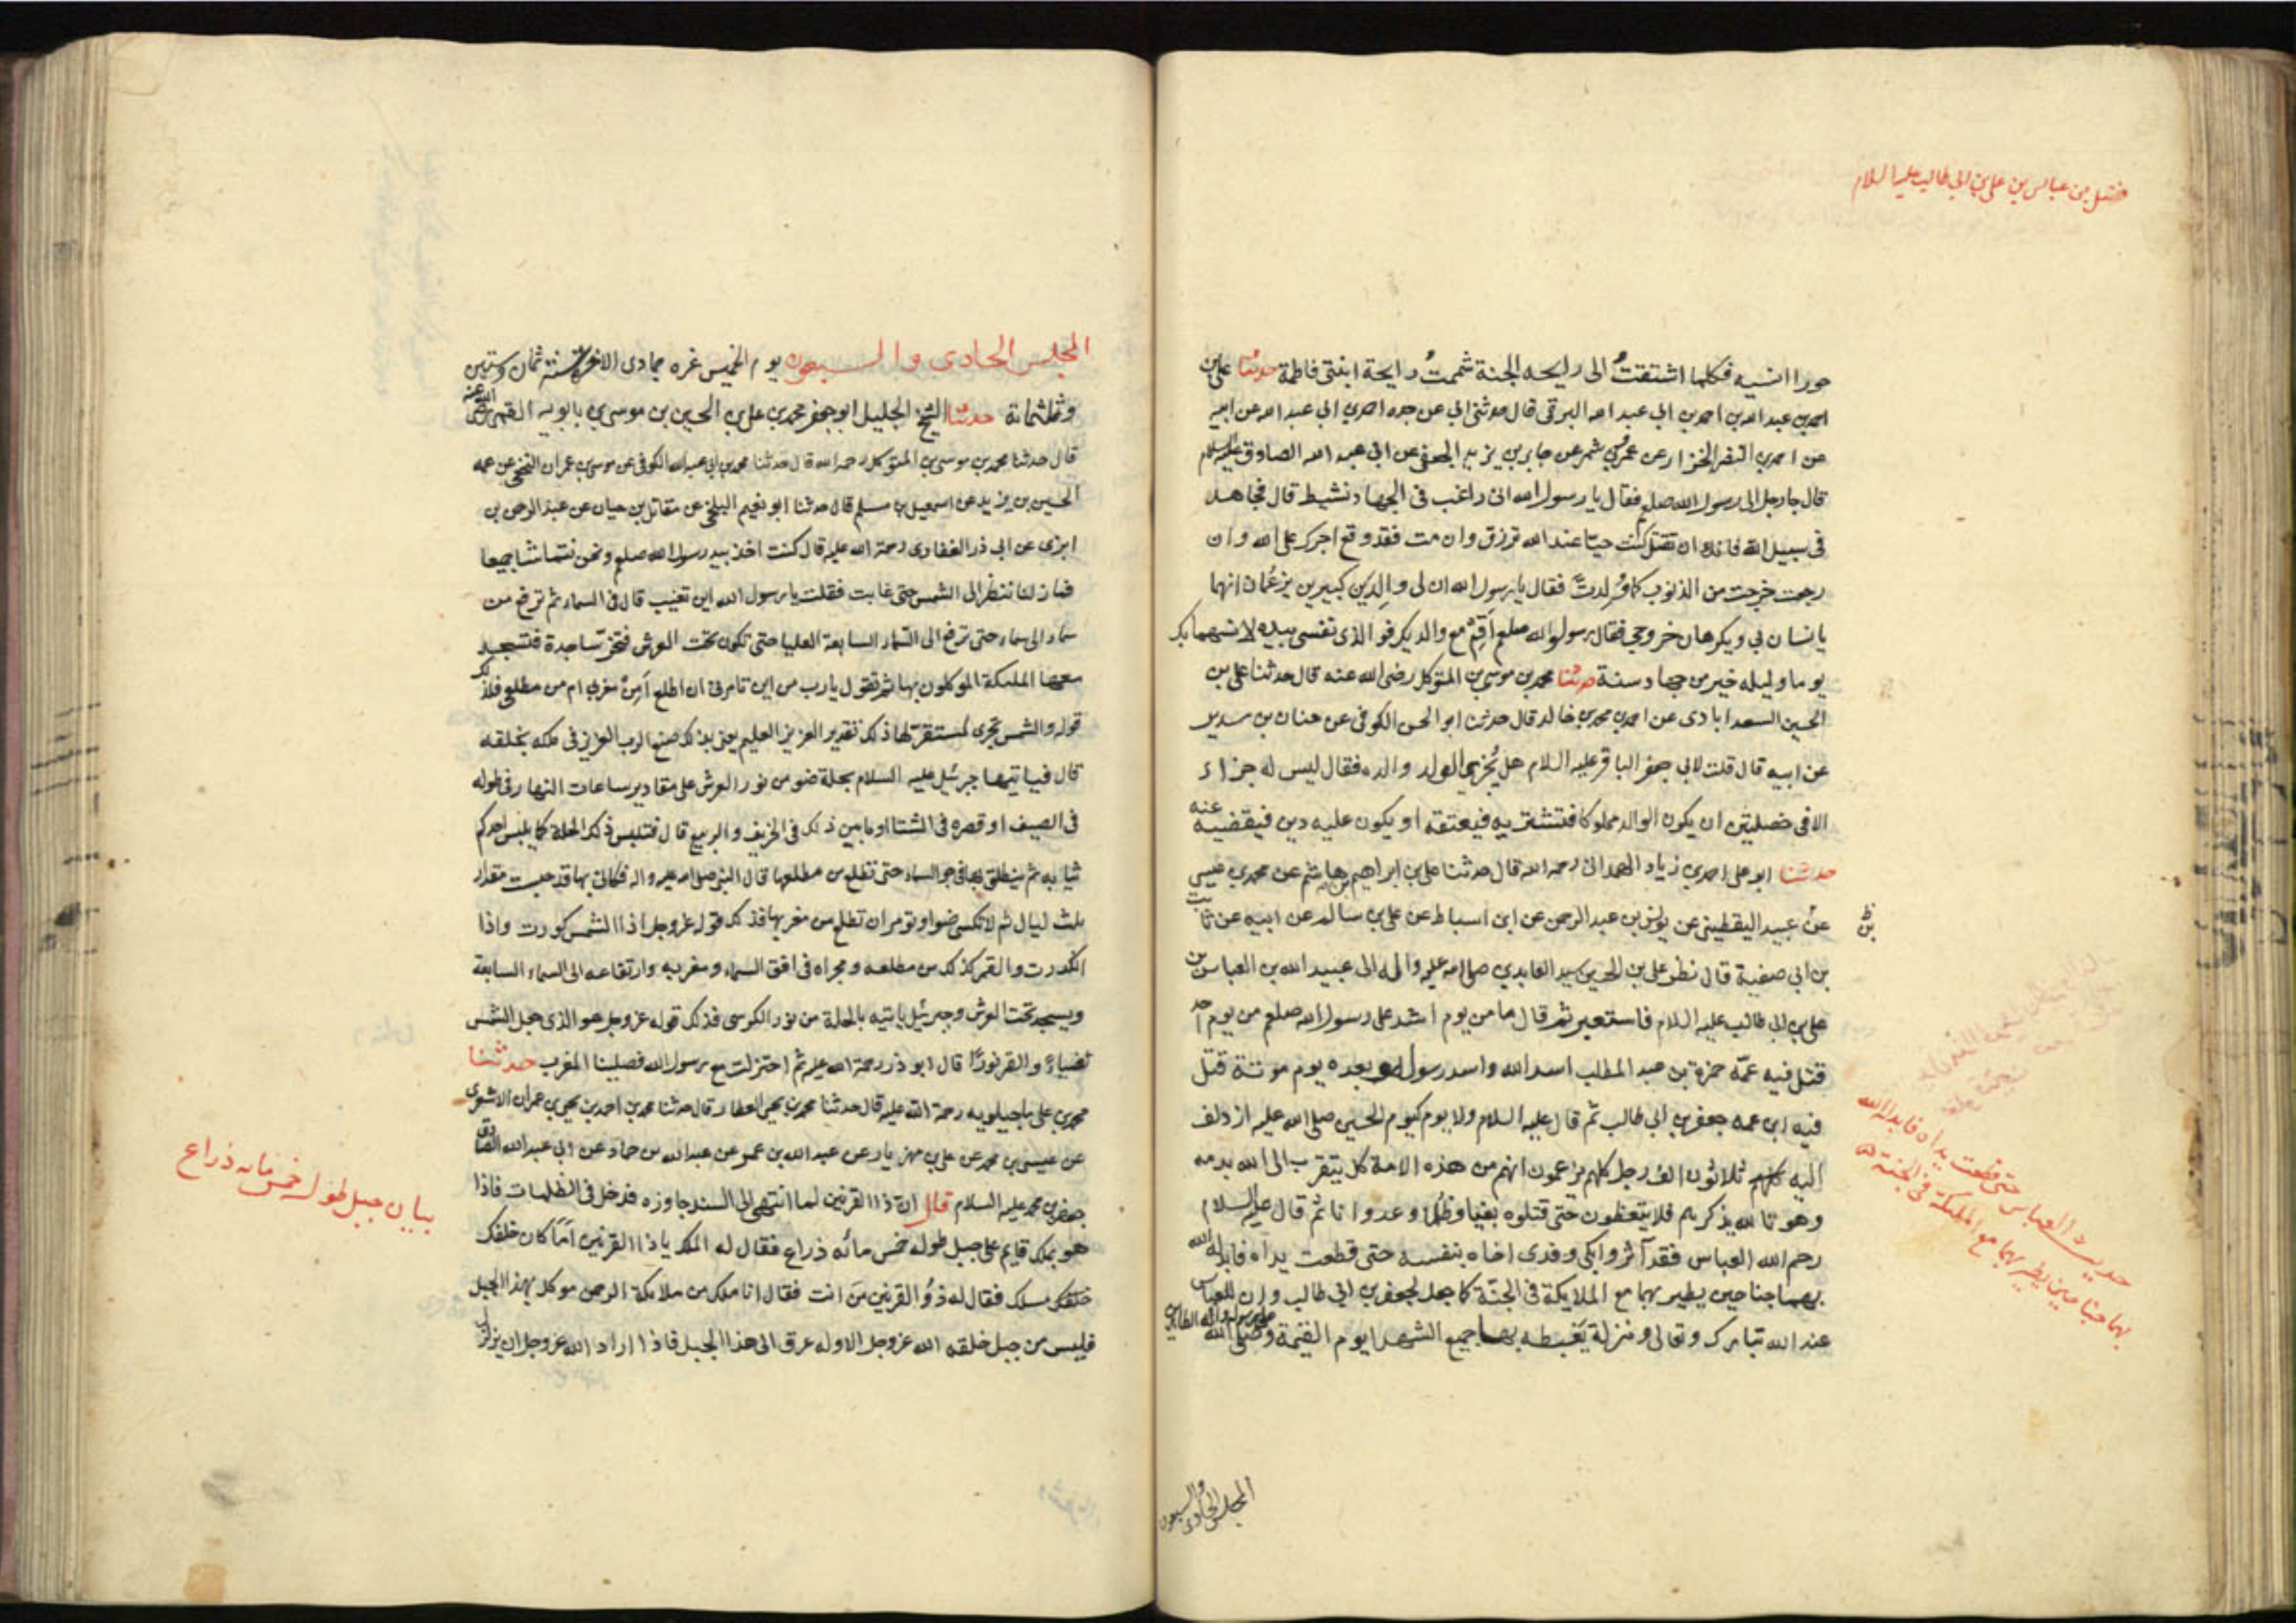 فضل بن عباس بن علي بن ابي طالب عليه السلام
حورا انسيه فكلما اشتقتُ الى رايحه الجنة شممتُ رايحة ابنتى فاطمة حدثنا على بن
احمد بن عبد الله بن احمد بن ابي عبد الله البرقى قال حدثنى ابي عن جده احمد بن ابي عبد الله عن ابيه
عن احمد بن النضر الخزاز عن عمرو بن شمر عن جابر بن يزيد الجعفى عن ابي عبد الله الصادق عليه السلام
قال جا رجل الى رسول الله صلعم فقال يا رسول الله انى راغب فى الجهاد نشيط قال فجاهد
فى سبيل الله فانك ان تقتل كنت حيّا عند الله ترزق وان مت فقد وقع اجرك على الله وان
رجعت خرجت من الذنوب كما وُلدتَ فقال يا رسول الله ان لى والدَين كبيرين يزعُمان انهما
يانسان بى ويكرهان خروجى فقال رسول الله صلعم اَقِمْ مع والديك فو الذى نفسى بيده لانسهما بك
يوما وليله خير من جهاد سنة حدثنا محمد بن موسى بن المتوكل رضى الله عنه قال حدثنا على بن
الحسين السعدابادى عن احمد بن محمد بن خالد قال حدثنا ابو الحسن الكوفى عن حنان بن سدير
عن ابيه قال قلت لابى جعفر الباقر عليه السلام هل يُجزى الولد والده فقال ليس له جزاء
الا فى خصلتين ان يكون الوالد مملوكا فتشتريه فيعتقه او يكون عليه دين فيقضيه عنه
حدثنا ابو على احمد بن زياد الهمدانى رحمه الله قال حدثنا على بن ابراهيم بن هاشم عن محمد بن عيسى
عن عبيد اليقطينى عن يونس بن عبد الرحمن عن ابن اسباط عن على بن سالم عن ابيه عن ثابت
بن ابى صفية قال نظر على بن الحسين سيد العابدين صلى الله عليه واله الى عبيد الله بن العباس بن
على بن ابى طالب عليه السلام فاستعبر ثم قال ما من يوم اشد على رسول الله صلعم من يوم احد
قتل فيه عمّه حمزة بن عبد المطلب اسد الله واسد رسوله وبعده يوم موتة قتل
فيه ابن عمه جعفر بن ابى طالب ثم قال عليه السلام ولا يوم كيوم الحسين صلى الله عليه ازدلف
اليه ثلاثون الف رجل كلهم يزعمون انهم من هذه الامة كل يتقرب الى الله بدمه
وهو بالله يذكرهم فلا يتعظون حتى قتلوه بغيا وظُلما وعدوانا ثم قال عليه السلام
رحم الله العباس فقد آثر وابكى وفدى اخاه بنفسه حتى قطعت يداه فابدله الله
بهما جناحين يطير بهما مع الملايكة فى الجنّة كما جعل لجعفر بن ابى طالب وان للعباس
عند الله تبارك وتعالى منزلة يَغبطه بها جميع الشهدا يوم القيمة وصلى الله
على رسوله واله الطاهرين
حديث العباس حتى قطعت يداه فابدله الله
بهما جناحين يطير بهما مع الملئكة فى الجنة
المجلس الحادى والسبعون
المجلس الحادى والسبعون يوم الخميس غره جمادى الاخرة سنة ثمان وستين
وثلثمائة حدثنا الشيخ الجليل ابو جعفر محمد بن على بن الحسين بن موسى بن بابويه القمى رضى الله عنه
قال حدثنا محمد بن موسى بن المتوكل رحمه الله قال حدثنا محمد بن ابى عبد الله الكوفى عن موسى بن عمران النخعى عن عمه
الحسين بن يزيد عن اسمعيل بن مسلم قال حدثنا ابو نعيم البلخى عن مقاتل بن حيان عن عبد الرحمن بن
ابزى عن ابى ذر الغفارى رحمة الله عليه قال كنت اخذ بيد رسول الله صلعم ونحن نتماشا جميعا
فما زلنا ننظر الى الشمس حتى غابت فقلت يا رسول الله اين تغيب قال فى السماء ثم ترفع من
سماء الى سماء حتى ترفع الى السّماء السابعة العليا حتى تكون تحت العرش فتخرّ ساجدة فتسجد
معها الملئكة الموكلون بها ثم تقول يارب من اين تامرنى ان اطلع اَمِنْ مغربى ام من مطلعى فذلك
قوله والشمس تجرى لمستقر لها ذلك تقدير العزيز العليم يعنى بذلك صنع الرب العزيز فى ملكه بخلقه
قال فياتيها جبرئيل عليه السلام بحلة ضو من نور العرش على مقادير ساعات النهار فى طوله
فى الصيف او قصره فى الشتا او ما بين ذلك فى الخريف والربيع قال فتلبس ذلك الحلة كما يلبس احدكم
ثيابه ثم ينطلق بها فى جو السماء حتى تطلع من مطلعها قال النبى صلى الله عليه واله فكانى بها قد حبست مقدار
ثلث ليال ثم لا تكسى ضوا وتومر ان تطلع من مغربها فذلك قوله عز وجل اذا الشمس كورت واذا
انكدرت والقمر كذلك من مطلعه ومجراه فى افق السماء ومغربه وارتفاعه الى السماء السابعة
ويسجد تحت العرش وجبرئيل ياتيه بالحلة من نور الكرسى فذلك قوله عز وجل هو الذى جعل الشمس
ضياءً والقمر نورًا قال ابو ذر رحمة الله عليه ثم اعتزلت مع رسول الله فصلينا المغرب حدثنا
محمد بن على ماجيلويه رحمة الله عليه قال حدثنا محمد بن يحيى العطار قال حدثنا محمد بن احمد بن يحيى بن عمران الاشعرى
عن عيسى بن محمد عن على بن مهزيار عن عبد الله بن عمر عن عبد الله بن حماد عن ابى عبد الله الصادق
جعفر بن محمد عليه السلام قال ان ذا القرنين لما انتهى الى السد جاوزه فدخل فى الظلمات فاذا
هو بملك قايم على جبل طوله خمس مائه ذراع فقال له الملك يا ذا القرنين اَما كان خلفك
مسلك فقال له ذو القرنين مَن انت فقال انا ملك من ملايكة الرحمن موكل بهذا الجبل
فليس من جبل خلقه الله عز وجل الا وله عرق الى هذا الجبل فاذا اراد الله عز وجل ان يزلزل
بيان جبل طوله خمس مائه ذراع